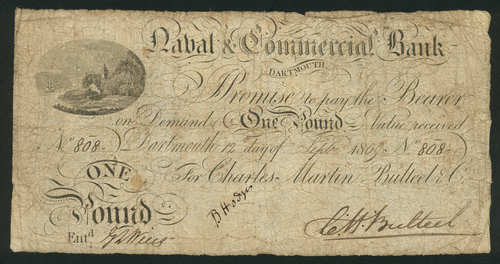 Naval & Commercial Bank
DARTMOUTH
I Promise to pay the Bearer
on Demand One Pound Value received
No 808 Dartmouth 12 day of Septr 1809 No 808
For Charles Martin Bulteel & Co
ONE
Pound
Entd
C.M. Bulteel